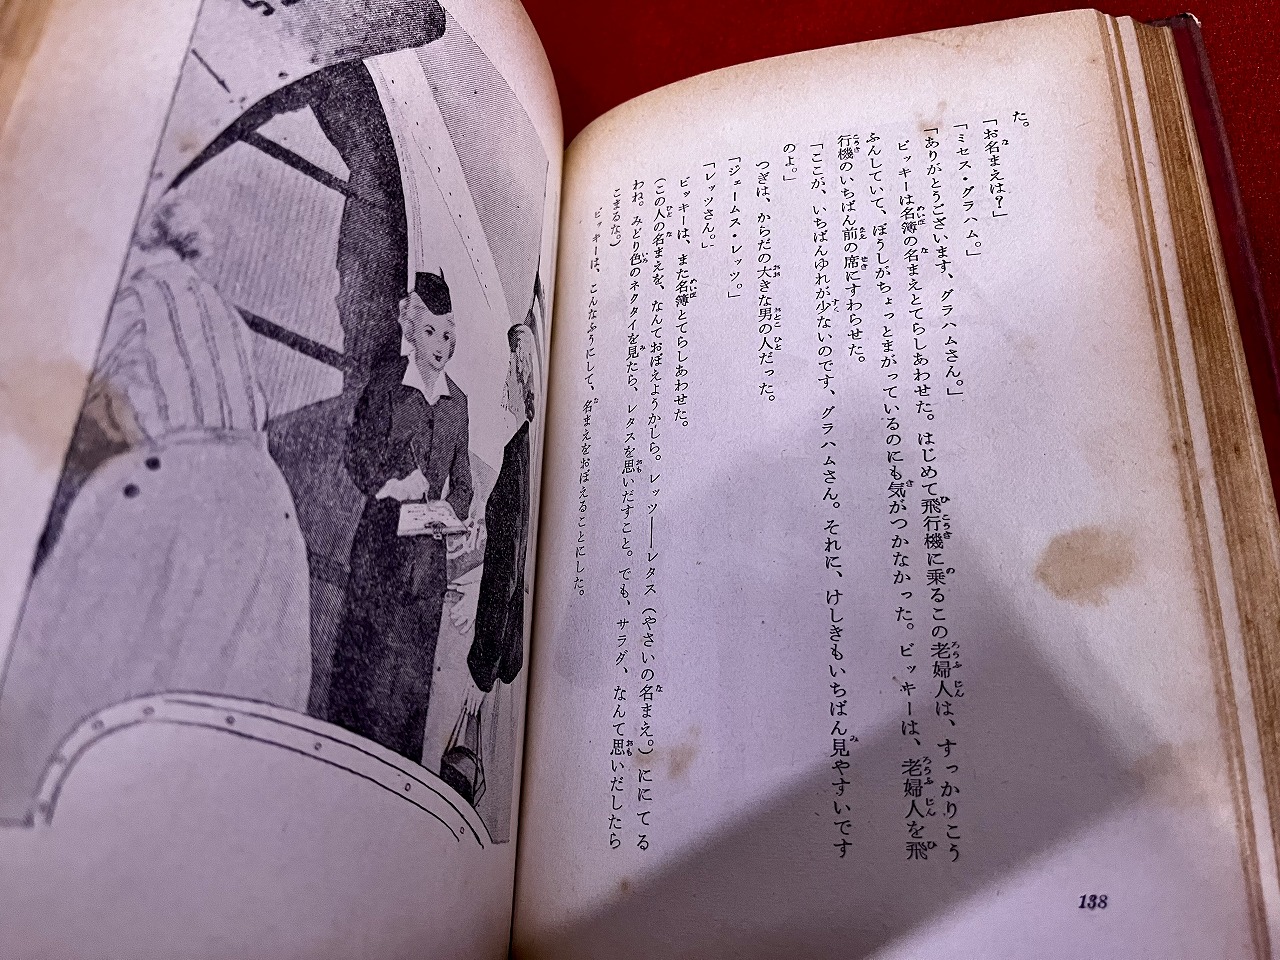 た。
「お名まえは?」
「ミセス・グラハム。」
「ありがとうございます、グラハムさん。」
ビッキーは名簿の名まえとてらしあわせた。はじめて飛行機に乗るこの老婦人は、すっかりこう
ふんしていて、ぼうしがちょっとまがっているのにも気がつかなかった。ビッキーは、老婦人を飛
行機のいちばん前の席にすわらせた。
「ここが、いちばんゆれが少ないのです、グラハムさん。それに、けしきもいちばん見やすいです
のよ。」
つぎは、からだの大きな男の人だった。
「ジェームス・レッツ。」
「レッツさん。」
ビッキーは、また名簿とてらしあわせた。
(この人の名まえを、なんておぼえようかしら。レッツ――レタス(やさいの名まえ。)ににてる
わね。みどり色のネクタイを見たら、レタスを思いだすこと。でも、サラダ、なんて思いだしたら
こまるな。)
ビッキーは、こんなふうにして、名まえをおぼえることにした。
138